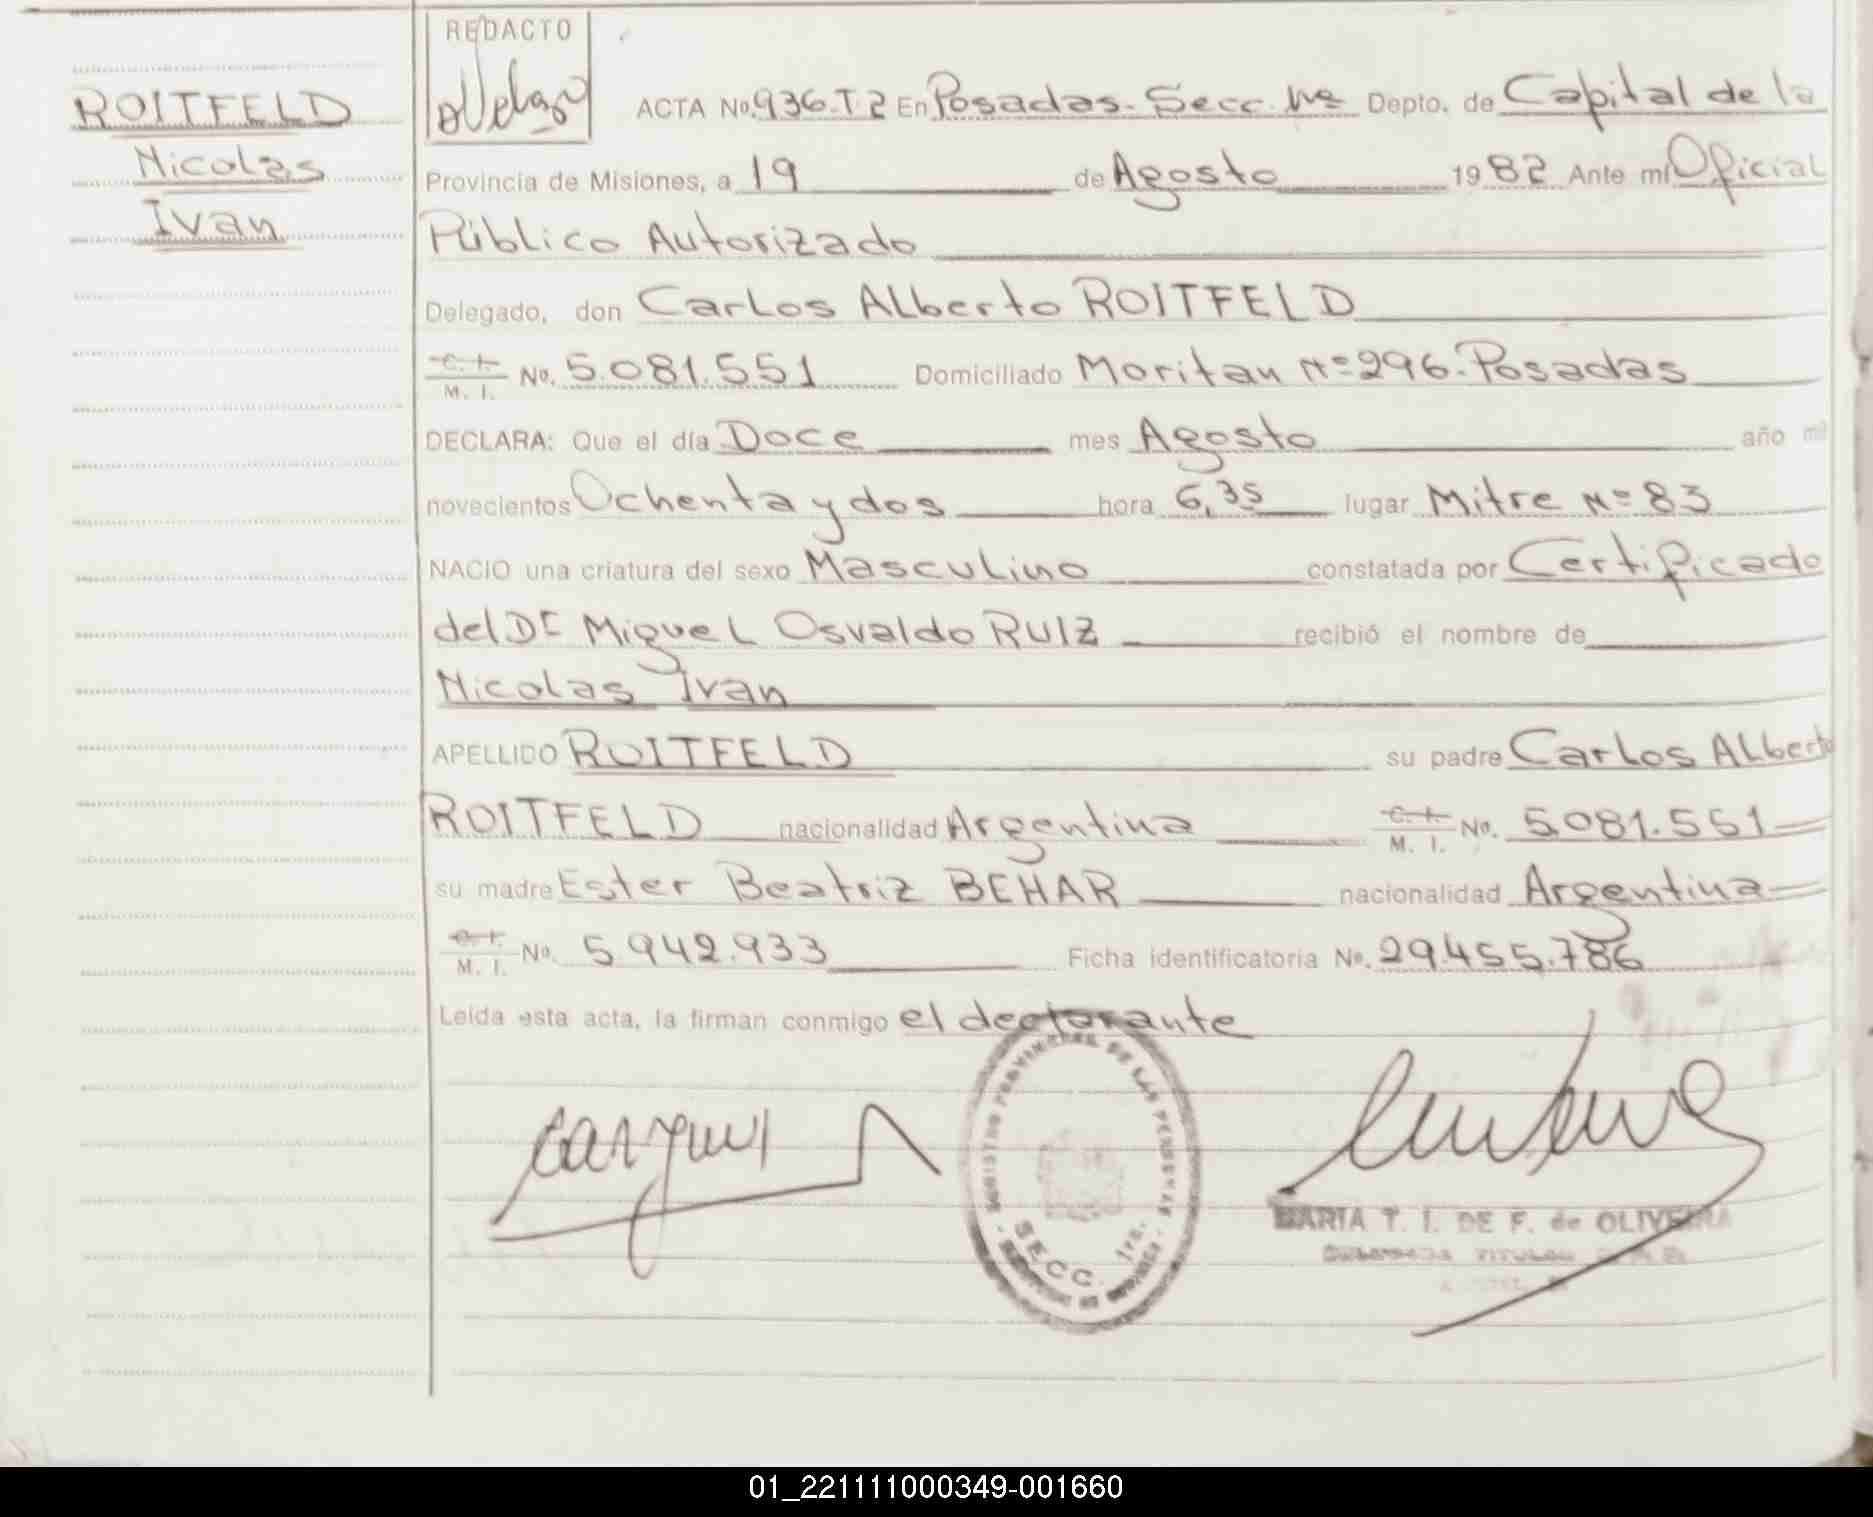 REDACTO
ROITFELD
Nicolas
Ivan
ACTA No. 936.T.2 En Posadas. Secc. 1ra Depto. de Capital de la
Provincia de Misiones, a 19 de Agosto 1982 Ante mí Oficial
Público Autorizado
Delegado, don Carlos Alberto ROITFELD
C. I.
M. I. No. 5.081.551 Domiciliado Moritan Nº 296. Posadas
DECLARA: Que el día Doce mes Agosto año mil
novecientos Ochenta y dos hora 6,35 lugar Mitre Nº 83
NACIO una criatura del sexo Masculino constatada por Certificado
del Dr Miguel Osvaldo RUIZ recibió el nombre de
Nicolas Ivan
APELLIDO ROITFELD su padre Carlos Alberto
ROITFELD nacionalidad Argentina C. I. M. I. No. 5.081.551
su madre Ester Beatriz BEHAR nacionalidad Argentina
C. I.
M. I. No. 5.942.933 Ficha identificatoria No. 29.455.786
Leída esta acta, la firman conmigo el declarante
REGISTRO PROVINCIAL DE LAS PERSONAS
SECC. 1ra.
MARIA T. I. DE F. de OLIVEIRA
01_221111000349-001660